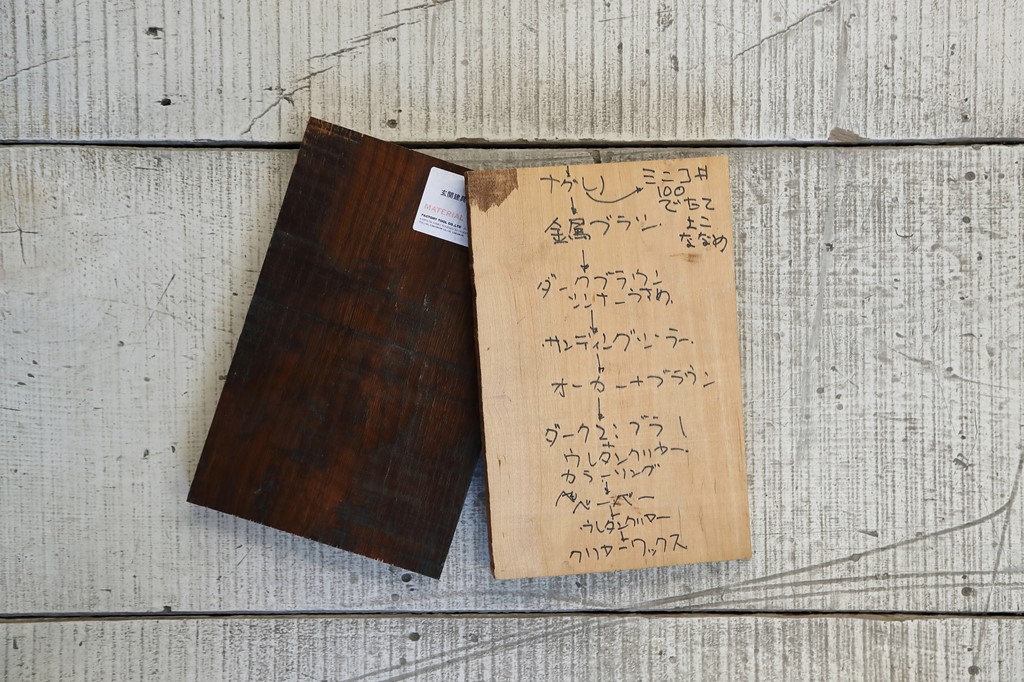 玄関建具
MATERIAL
FACTORY TOOL CO.,LTD
ナグリ
ミニコ#
100
でたて
よこ
ななめ
金属ブラシ
ダークブラウン
シンナーうすめ
サンディングシーラー
オーカー+ブラウン
ダーク2:ブラ1
ウレタンクリヤー
カラーリング
ペーパー
ウレタンクリヤー
クリヤーワックス